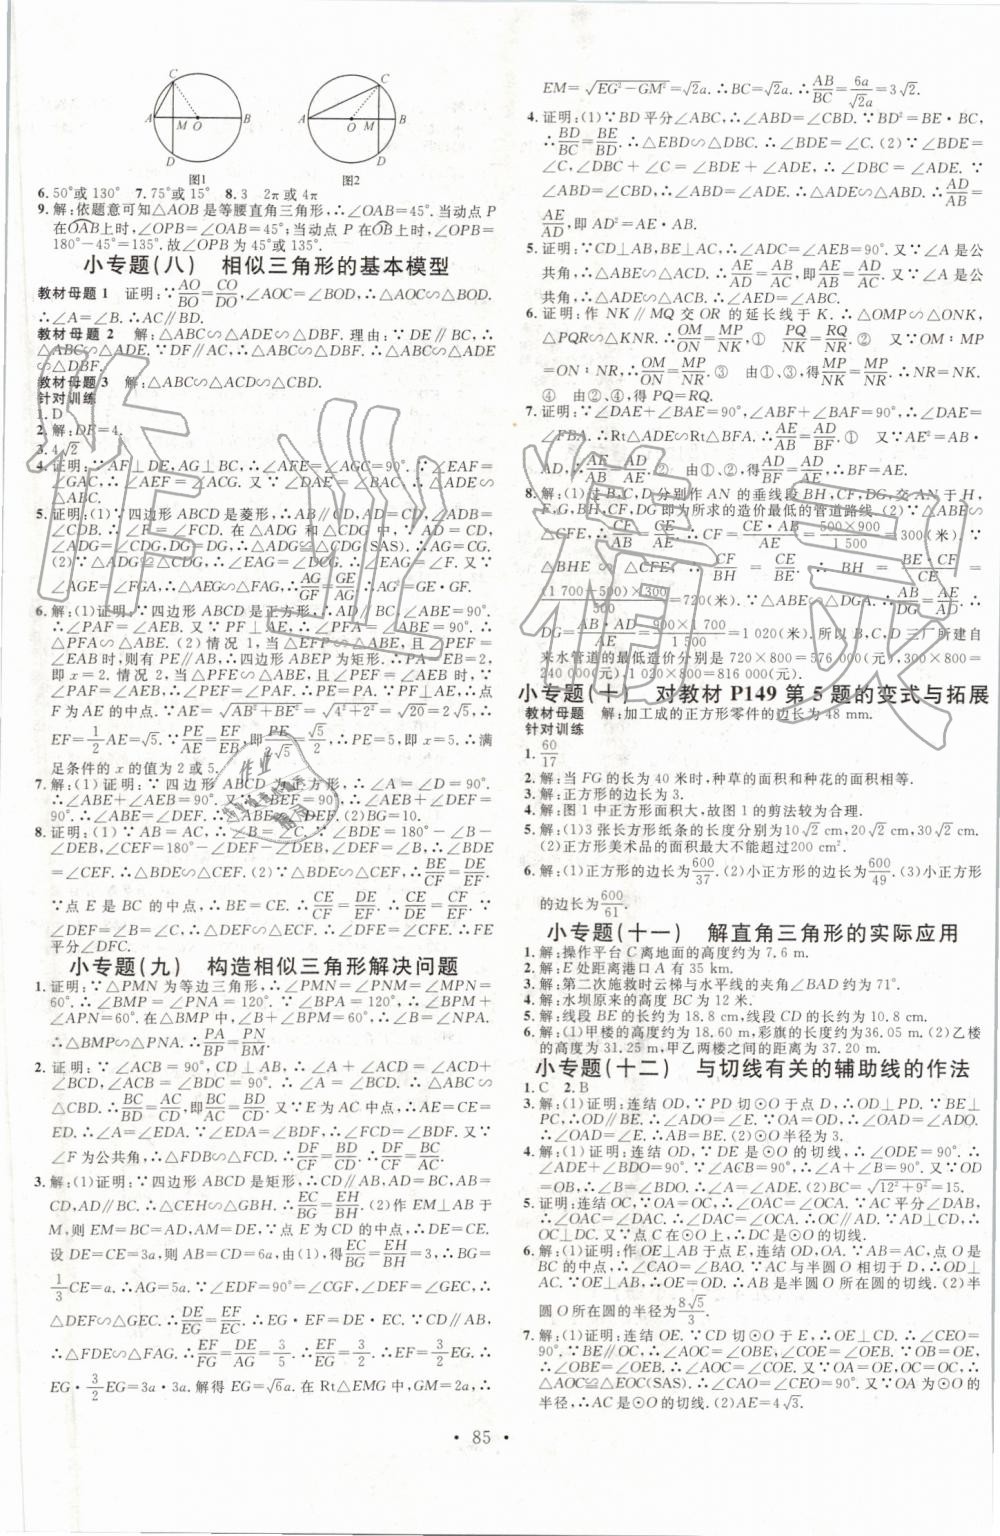 C
A M O B
D
图1
C
A O M B
D
图2
6. 50°或 130° 7. 75°或 15° 8. 3 2π或 4π
9. 解:依题意可知△AOB 是等腰直角三角形,∴∠OAB=45°. 当动点 P
在OAB上时,∠OPB=∠OAB=45°;当动点 P 在OB上时,∠OPB=
180°-45°=135°. 故∠OPB 为 45°或 135°.
小专题(八) 相似三角形的基本模型
教材母题 1 证明:∵AO/BO=CO/DO,∠AOC=∠BOD,∴△AOC∽△BOD.
∴∠A=∠B. ∴AC∥BD.
教材母题 2 解:△ABC∽△ADE∽△DBF. 理由:∵DE∥BC,∴
△ABC∽△ADE. ∵DF∥AC,∴△ABC∽△DBF. ∴△ABC∽△ADE
∽△DBF.
教材母题 3 解:△ABC∽△ACD∽△CBD.
针对训练
1. D
2. 解:DF=4.
3. 4√2
4. 证明:∵AF⊥DE,AG⊥BC,∴∠AFE=∠AGC=90°. ∵∠EAF=
∠GAC,∴∠AEF=∠ACG. 又∵∠DAE=∠BAC,∴△ADE∽
△ABC.
5. 证明:(1)∵四边形 ABCD 是菱形,∴AB∥CD,AD=CD,∠ADB=
∠CDB. ∴∠F=∠FCD. 在△ADG 和△CDG 中,∵AD=CD,
∠ADG=∠CDG,DG=DG,∴△ADG≌△CDG(SAS). ∴AG=CG.
(2)∵△ADG≌△CDG,∴∠EAG=∠DCG. ∴∠EAG=∠F. 又∵
∠AGE=∠FGA,∴△AEG∽△FAG,∴AG/GF=GE/AG. ∴AG²=GE·GF.
6. 解:(1)证明:∵四边形 ABCD 是正方形,∴AD∥BC,∠ABE=90°.
∴∠PAF=∠AEB. 又∵PF⊥AE,∴∠PFA=∠ABE=90°. ∴
△PFA∽△ABE. (2)情况 1,当△EFP∽△ABE,且∠PEF=
∠EAB 时,则有 PE∥AB,∴四边形 ABEP 为矩形. ∴PA=EB=2,
即 x=2. 情况 2,当△PFE∽△ABE,且∠PEF=∠AEB 时,∵
∠PAF=∠AEB,∴∠PEF=∠PAF. ∴PE=PA. ∵PF⊥AE,∴点
F 为 AE 的中点. ∵AE=√(AB²+BE²)=√(4²+2²)=√20=2√5,∴
EF=1/2AE=√5. ∵PE/AE=EF/EB,即PE/2√5=√5/2,∴PE=5,即 x=5. ∴满
足条件的 x 的值为 2 或 5.
7. 解:(1)证明:∵四边形 ABCD 为正方形,∴∠A=∠D=90°.
∴∠ABE+∠AEB=90°. 又∵∠BEF=90°,∴∠AEB+∠DEF=
90°. ∴∠ABE=∠DEF. ∴△ABE∽△DEF. (2)BG=10.
8. 证明:(1)∵AB=AC,∴∠B=∠C. ∵∠BDE=180°-∠B-
∠DEB,∠CEF=180°-∠DEF-∠DEB,∠DEF=∠B,∴∠BDE
=∠CEF. ∴△BDE∽△CEF. (2)∵△BDE∽△CEF,∴BE/CF=DE/EF.
∵点 E 是 BC 的中点,∴BE=CE. ∴CE/CF=DE/EF. ∴DE/CE=EF/CF. ∵
∠DEF=∠B=∠C,∴△DEF∽△ECF. ∴∠DFE=∠CFE. ∴FE
平分∠DFC.
小专题(九) 构造相似三角形解决问题
1. 证明:∵△PMN 为等边三角形,∴∠PMN=∠PNM=∠MPN=
60°. ∴∠BMP=∠PNA=120°. ∵∠BPA=120°,∴∠BPM+
∠APN=60°. 在△BMP 中,∵∠B+∠BPM=60°,∴∠B=∠NPA.
∴△BMP∽△PNA. ∴PA/BP=PN/BM.
2. 证明:∵∠ACB=90°,CD⊥AB,∴∠A+∠ACD=∠ACD+
∠BCD,∠ACB=∠BDC=90°. ∴∠A=∠BCD. ∴△ABC∽
△CBD. ∴BC/BD=AC/CD,即BD/CD=BC/AC. 又∵E 为 AC 中点,∴AE=CE=
ED. ∴∠A=∠EDA. ∵∠EDA=∠BDF,∴∠FCD=∠BDF. 又∵
∠F 为公共角,∴△FDB∽△FCD. ∴DF/CF=BD/CD. ∴DF/CF=BC/AC.
3. 解:(1)证明:∵四边形 ABCD 是矩形,∴∠C=∠ABC=90°,AB=
CD,AD∥BC. ∴△CEH∽△GBH. ∴EC/BG=EH/BH. (2)作 EM⊥AB 于
M,则 EM=BC=AD,AM=DE. ∵点 E 为 CD 的中点,∴DE=CE.
设 DE=CE=3a,则 AB=CD=6a,由(1),得EC/BG=EH/BH=3,∴BG=
1/3CE=a. ∴AG=5a. ∵∠EDF=90°=∠CGF,∠DEF=∠GEC,∴
△DEF∽△GEC. ∴DE/EG=EF/EC.
∴△FDE∽△FAG. ∴EF/FG=DE/AG=3/5. ∴EF/EG=3/2. ∴EF=3/2EG. ∴
EG·3/2EG=3a·3a. 解得 EG=√6a. 在 Rt△EMG 中,GM=2a,∴
EM=√(EG²-GM²)=√2a. ∴BC=√2a. ∴AB/BC=6a/√2a=3√2.
4. 证明:(1)∵BD 平分∠ABC,∴∠ABD=∠CBD. ∵BD²=BE·BC,
∴BD/BC=BE/BD. ∴△EBD∽△DBC. ∴∠BDE=∠C. (2)∵∠BDE=
∠C,∠DBC+∠C=∠BDE+∠ADE,∴∠DBC=∠ADE. ∵
∠ABD=∠CBD,∴∠ABD=∠ADE. ∴△ADE∽△ABD. ∴AD/AB=
AE/AD,即 AD²=AE·AB.
5. 证明:∵CD⊥AB,BE⊥AC,∴∠ADC=∠AEB=90°. 又∵∠A 是公
共角,∴△ADC∽△AEB. ∴AE/AD=AB/AC,即AE/AB=AD/AC. 又∵∠A 是公
共角,∴△ADE∽△ACB. ∴∠AED=∠ABC.
6. 证明:作 NK∥MQ 交 OR 的延长线于 K. ∴△OMP∽△ONK,
△PQR∽△KNR. ∴OM/ON=MP/NK. ① PQ/NK=RQ/NR. ② 又∵OM=
ON·NR,∴OM/ON=MP/NR. ③ 由①、③,得MP/NR=MP/NK. ∴NR=NK.
④ 由②、④,得 PQ=RQ.
7. 证明:∵∠DAE+∠BAF=90°,∠ABF+∠BAF=90°,∴∠DAE=
∠FBA. ∴Rt△ADE∽Rt△BFA. ∴AE/AB=DE/BF. ① 又∵AE²=AB·
AD,∴AE/AB=AD/AE. ② 由①、②,得DE/BF=AD/AE. ∴BF=AE.
8. 解:(1)过 B,C,D 分别作 AN 的垂线段 BH,CF,DG,交 AN 于 H,
F,G,BH,CF,DG 即为所求的造价最低的管道路线. (2)∵△ABE∽
△CFE,
240 000(元),1 020×800=816 000(元).
小专题(十) 对教材 P149 第 5 题的变式与拓展
教材母题 解:加工成的正方形零件的边长为 48 mm.
针对训练
1. 60/17
2. 解:当 FG 的长为 40 米时,种草的面积和种花的面积相等.
3. 解:正方形的边长为 3.
4. 解:图 1 中正方形面积大,故图 1 的剪法较为合理.
5. 解:(1)3 张长方形纸条的长度分别为10√2 cm,20√2 cm,30√2 cm.
(2)正方形美术品的面积最大不能超过200 cm².
6. 解:(1)正方形的边长为600/37. (2)小正方形的边长为600/49. (3)小正方形
的边长为600/61.
小专题(十一) 解直角三角形的实际应用
1. 解:操作平台 C 离地面的高度约为 7.6 m.
2. 解:E 处距离港口 A 有 35 km.
3. 解:第二次施救时云梯与水平线的夹角∠BAD 约为 71°.
4. 解:水坝原来的高度 BC 为 12 米.
5. 解:线段 BE 的长约为 18.8 cm,线段 CD 的长约为 10.8 cm.
6. 解:(1)甲楼的高度约为 18.60 m,彩旗的长度约为 36.05 m. (2)乙楼
的高度为 31.25 m,甲乙两楼之间的距离为 37.20 m.
小专题(十二) 与切线有关的辅助线的作法
1. C 2. B
3. 解:(1)证明:连结 OD,∵PD 切⊙O 于点 D,∴OD⊥PD. ∵BE⊥
PC,∴OD∥BE. ∴∠ADO=∠E. ∵OA=OD,∴∠OAD=∠ADO.
∴∠OAD=∠E. ∴AB=BE. (2)⊙O 半径为 3.
4. 解:(1)证明:连结 OD,∵DE 是⊙O 的切线,∴∠ODE=90°. ∴
∠ADE+∠BDO=90°. ∵∠ACB=90°,∴∠A+∠B=90°. 又∵OD
=OB,∴∠B=∠BDO. ∴∠A=∠ADE. (2)BC=√(12²+9²)=15.
5. 证明:连结 OC,∵OA=OC,∴∠OAC=∠OCA. ∵AC 平分∠DAB,
∴∠OAC=∠DAC. ∴∠DAC=∠OCA. ∴OC∥AD. ∵AD⊥CD,
∴OC⊥CD. ∵点 C 在⊙O 上,∴CD 是⊙O 的切线.
6. 解:(1)证明:作 OE⊥AB 于点 E,连结 OD,OA. ∵AB=AC,点 O 是
BC 的中点,∴∠CAO=∠BAO. ∵AC 与半圆 O 相切于
D,∴OD⊥AC. ∴OD=OE. ∴AB 是半圆 O 所在圆的切线. (2)半
圆 O 所在圆的半径为8√5/3.
7. 解:(1)证明:连结 OE. ∵CD 与⊙O 相切于点 E,∴OE⊥CD. ∴∠CEO=
90°. ∵BE∥OC,∴∠AOC=∠OBE,∠COE=∠OEB. ∵OB=OE,
∴∠OBE=∠OEB. ∴∠AOC=∠COE. 又∵OA=OE,OC=OC,∴
△AOC≌△EOC(SAS). ∴∠CAO=∠CEO=90°. 又∵OA 为⊙O 的
半径,∴AC 是⊙O 的切线. (2)AE=4√3.
· 85 ·